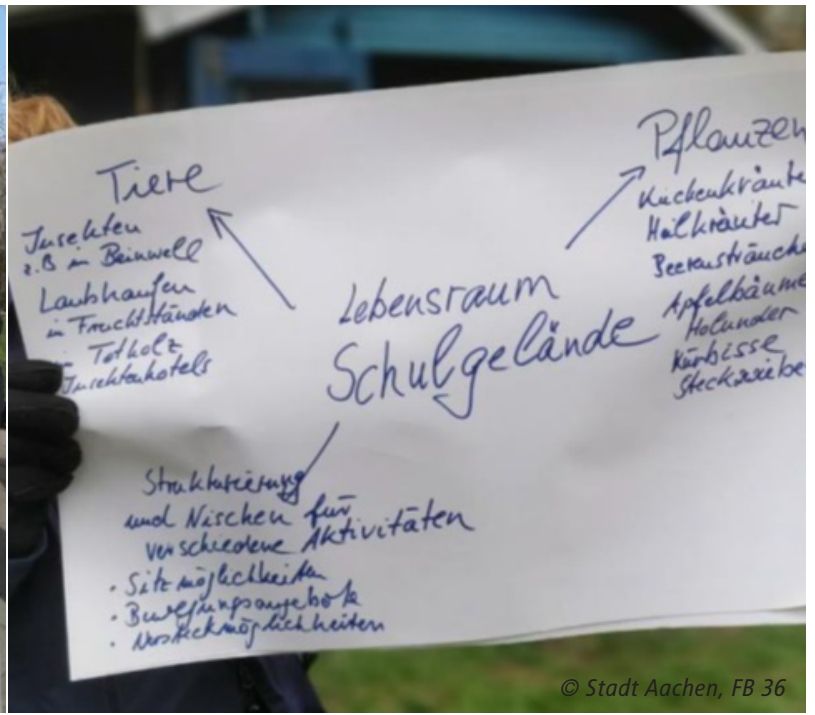 Tiere
Insekten
z.B in Beinwell
Laubhaufen
in Fruchtständen
in Totholz
Insektenhotels
Pflanzen
Küchenkräute
Heilkräuter
Beerensträuche
Apfelbäume
Holunder
Kürbisse
Steckrübe
Lebensraum
Schulgelände
Strukturierung
und Nischen für
verschiedene Aktivitäten
• Sitzmöglichkeiten
• Bewegungsangebote
• Versteckmöglichkeiten
© Stadt Aachen, FB 36